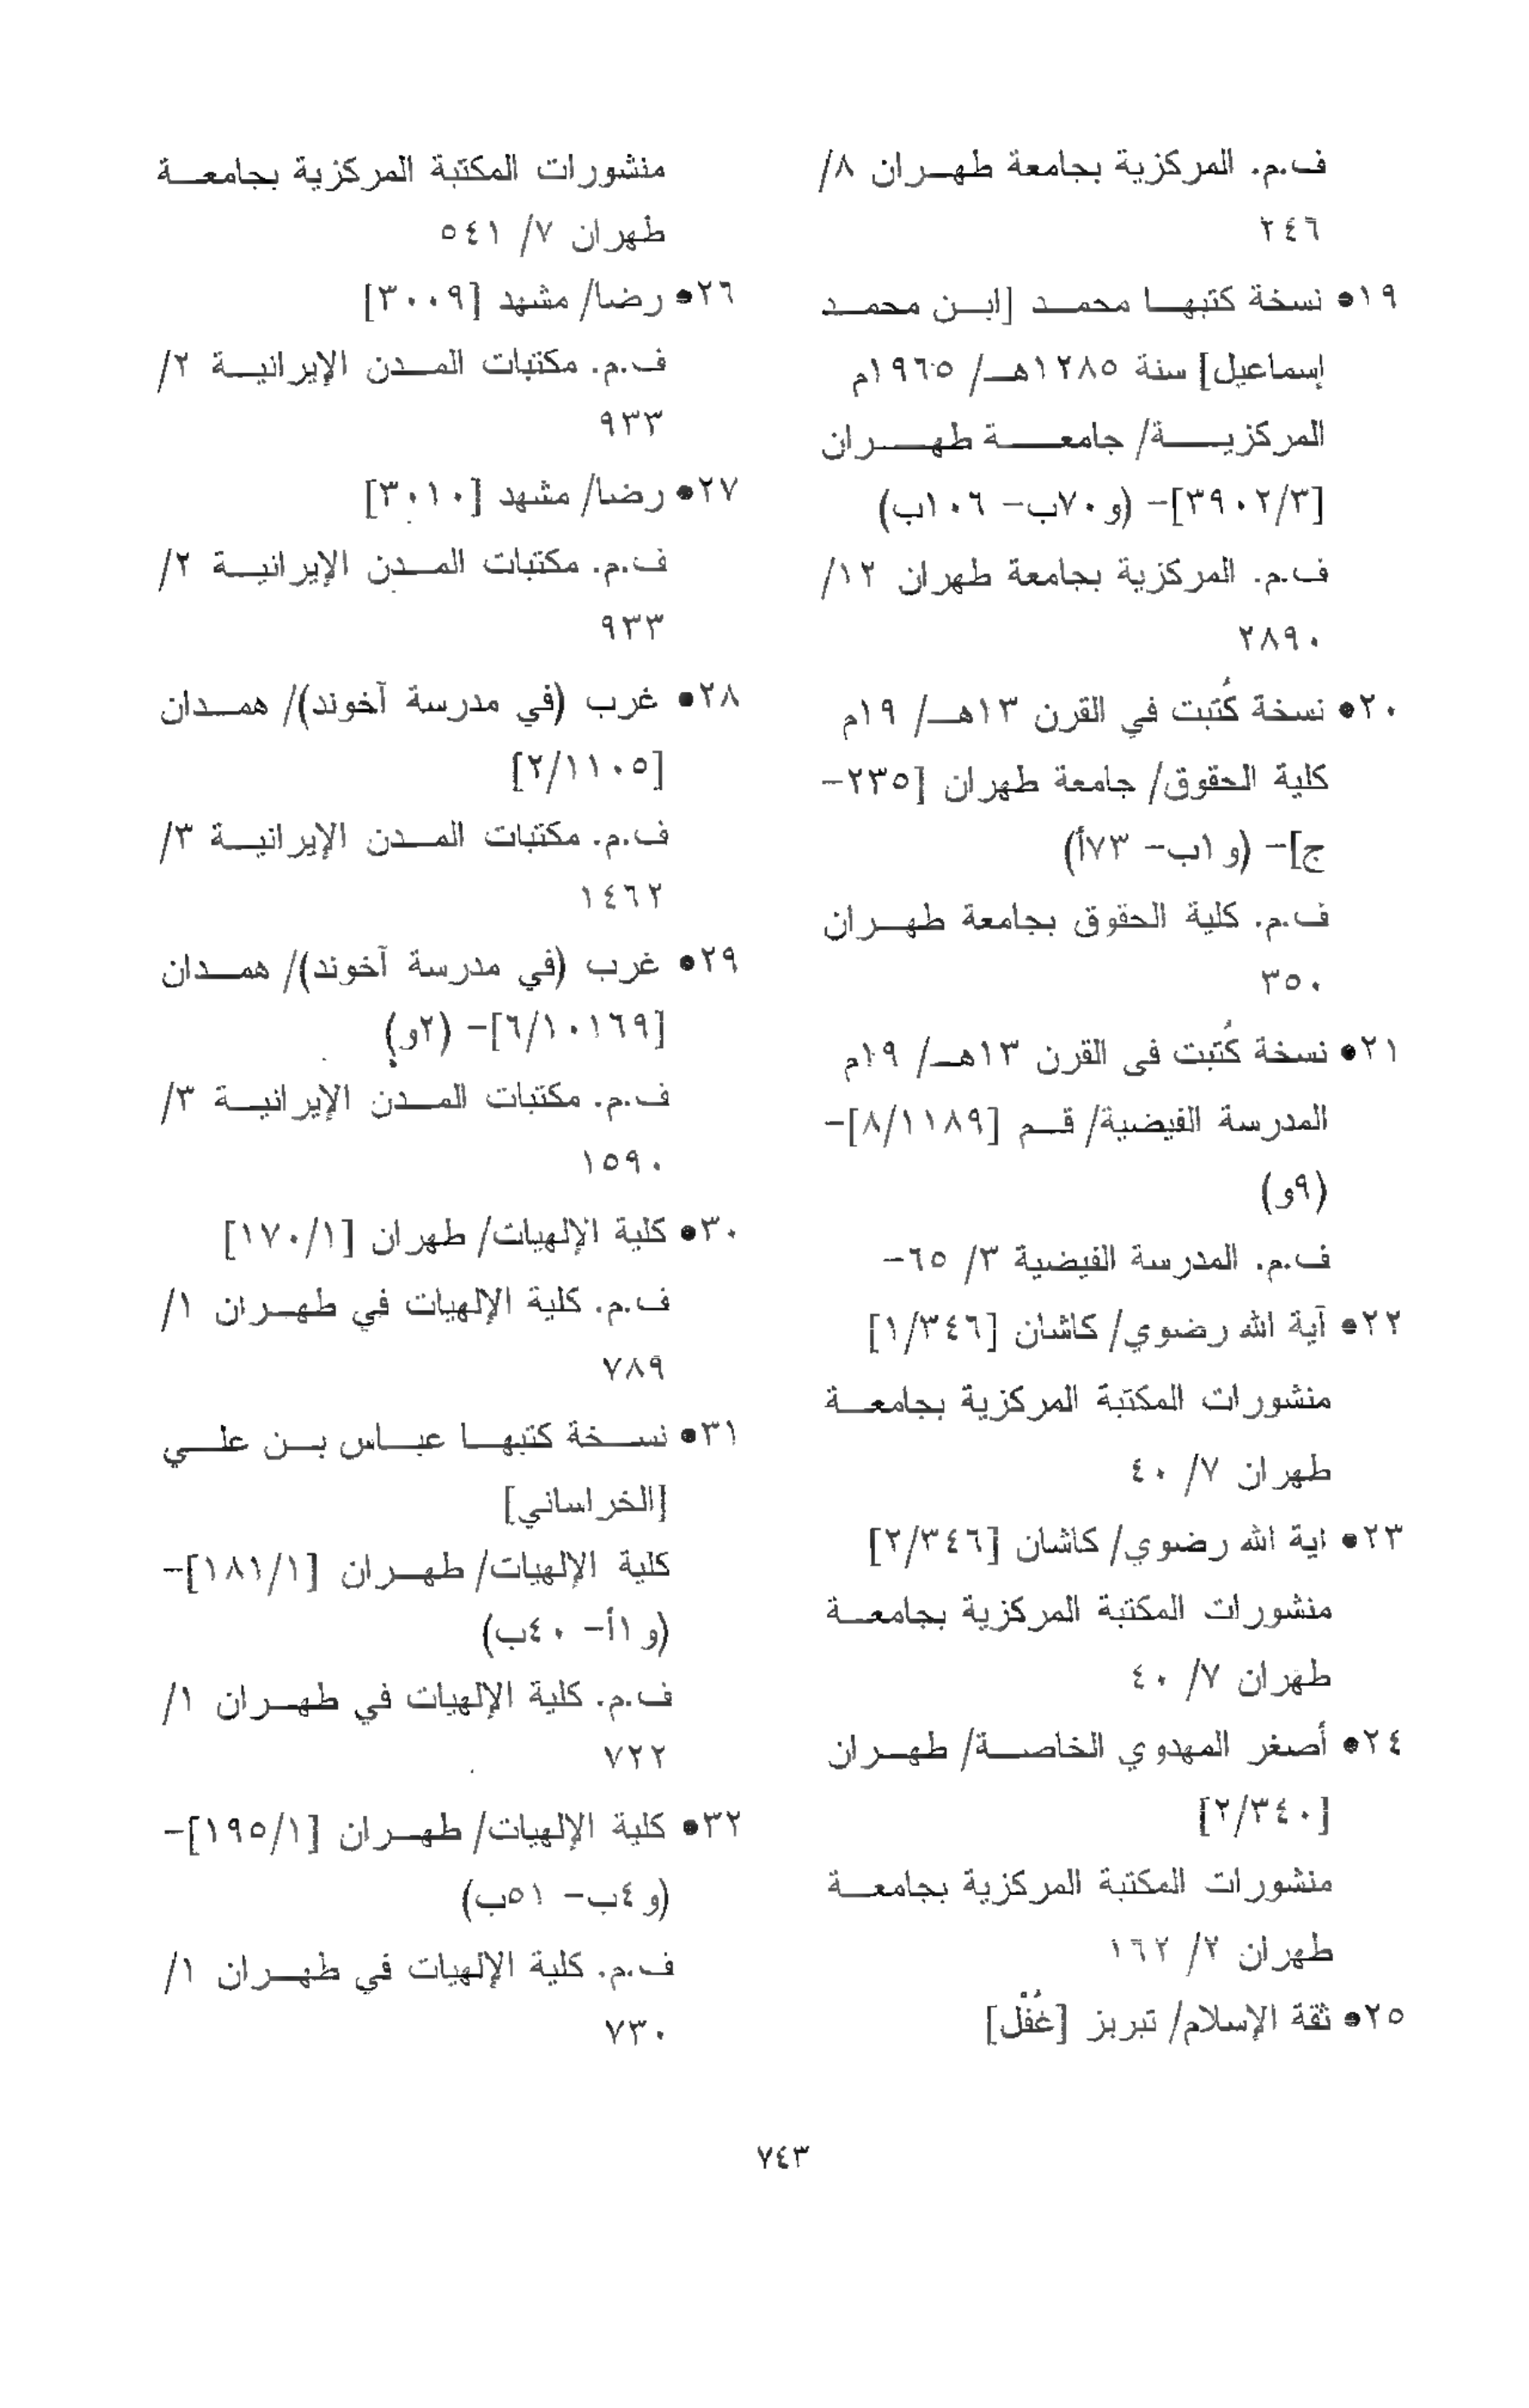 ف.م. المركزية بجامعة طهران ٨/
٢٤٦
١٩● نسخة كتبها محمد [ابن محمد
إسماعيل] سنة ١٢٨٥هـ/ ١٩٦٥م
المركزية/ جامعة طهران
[٣٩٠٢/٣]- (و٧٠ب- ١٠٦ب)
ف.م. المركزية بجامعة طهران ١٢/
٢٨٩٠
٢٠● نسخة كُتبت في القرن ١٣هـ/ ١٩م
كلية الحقوق/ جامعة طهران [٢٣٥-
ج]- (و١ب- ٧٣أ)
ف.م. كلية الحقوق بجامعة طهران
٣٥٠
٢١● نسخة كُتبت فى القرن ١٣هـ/ ١٩م
المدرسة الفيضية/ قم [٨/١١٨٩]-
(٩و)
ف.م. المدرسة الفيضية ٣/ ٦٥-
٢٢● آية الله رضوي/ كاشان [١/٣٤٦]
منشورات المكتبة المركزية بجامعة
طهران ٧/ ٤٠
٢٣● اية الله رضوي/ كاشان [٢/٣٤٦]
منشورات المكتبة المركزية بجامعة
طهران ٧/ ٤٠
٢٤● أصغر المهدوي الخاصة/ طهران
[٢/٣٤٠]
منشورات المكتبة المركزية بجامعة
طهران ٢/ ١٦٢
٢٥● ثقة الإسلام/ تبريز [غُفْل]
منشورات المكتبة المركزية بجامعة
طهران ٧/ ٥٤١
٢٦● رضا/ مشهد [٣٠٠٩]
ف.م. مكتبات المدن الإيرانية ٢/
٩٣٣
٢٧● رضا/ مشهد [٣٠١٠]
ف.م. مكتبات المدن الإيرانية ٢/
٩٣٣
٢٨● غرب (في مدرسة آخوند)/ همدان
[٢/١١٠٥]
ف.م. مكتبات المدن الإيرانية ٣/
١٤٦٢
٢٩● غرب (في مدرسة آخوند)/ همدان
[٦/١٠١٦٩]- (٢و)
ف.م. مكتبات المدن الإيرانية ٣/
١٥٩٠
٣٠● كلية الإلهيات/ طهران [١٧٠/١]
ف.م. كلية الإلهيات في طهران ١/
٧٨٩
٣١● نسخة كتبها عباس بن علي
[الخراساني]
كلية الإلهيات/ طهران [١٨١/١]-
(و١أ- ٤٠ب)
ف.م. كلية الإلهيات في طهران ١/
٧٢٢
٣٢● كلية الإلهيات/ طهران [١٩٥/١]-
(و٤ب- ٥١ب)
ف.م. كلية الإلهيات في طهران ١/
٧٣٠
٧٤٣